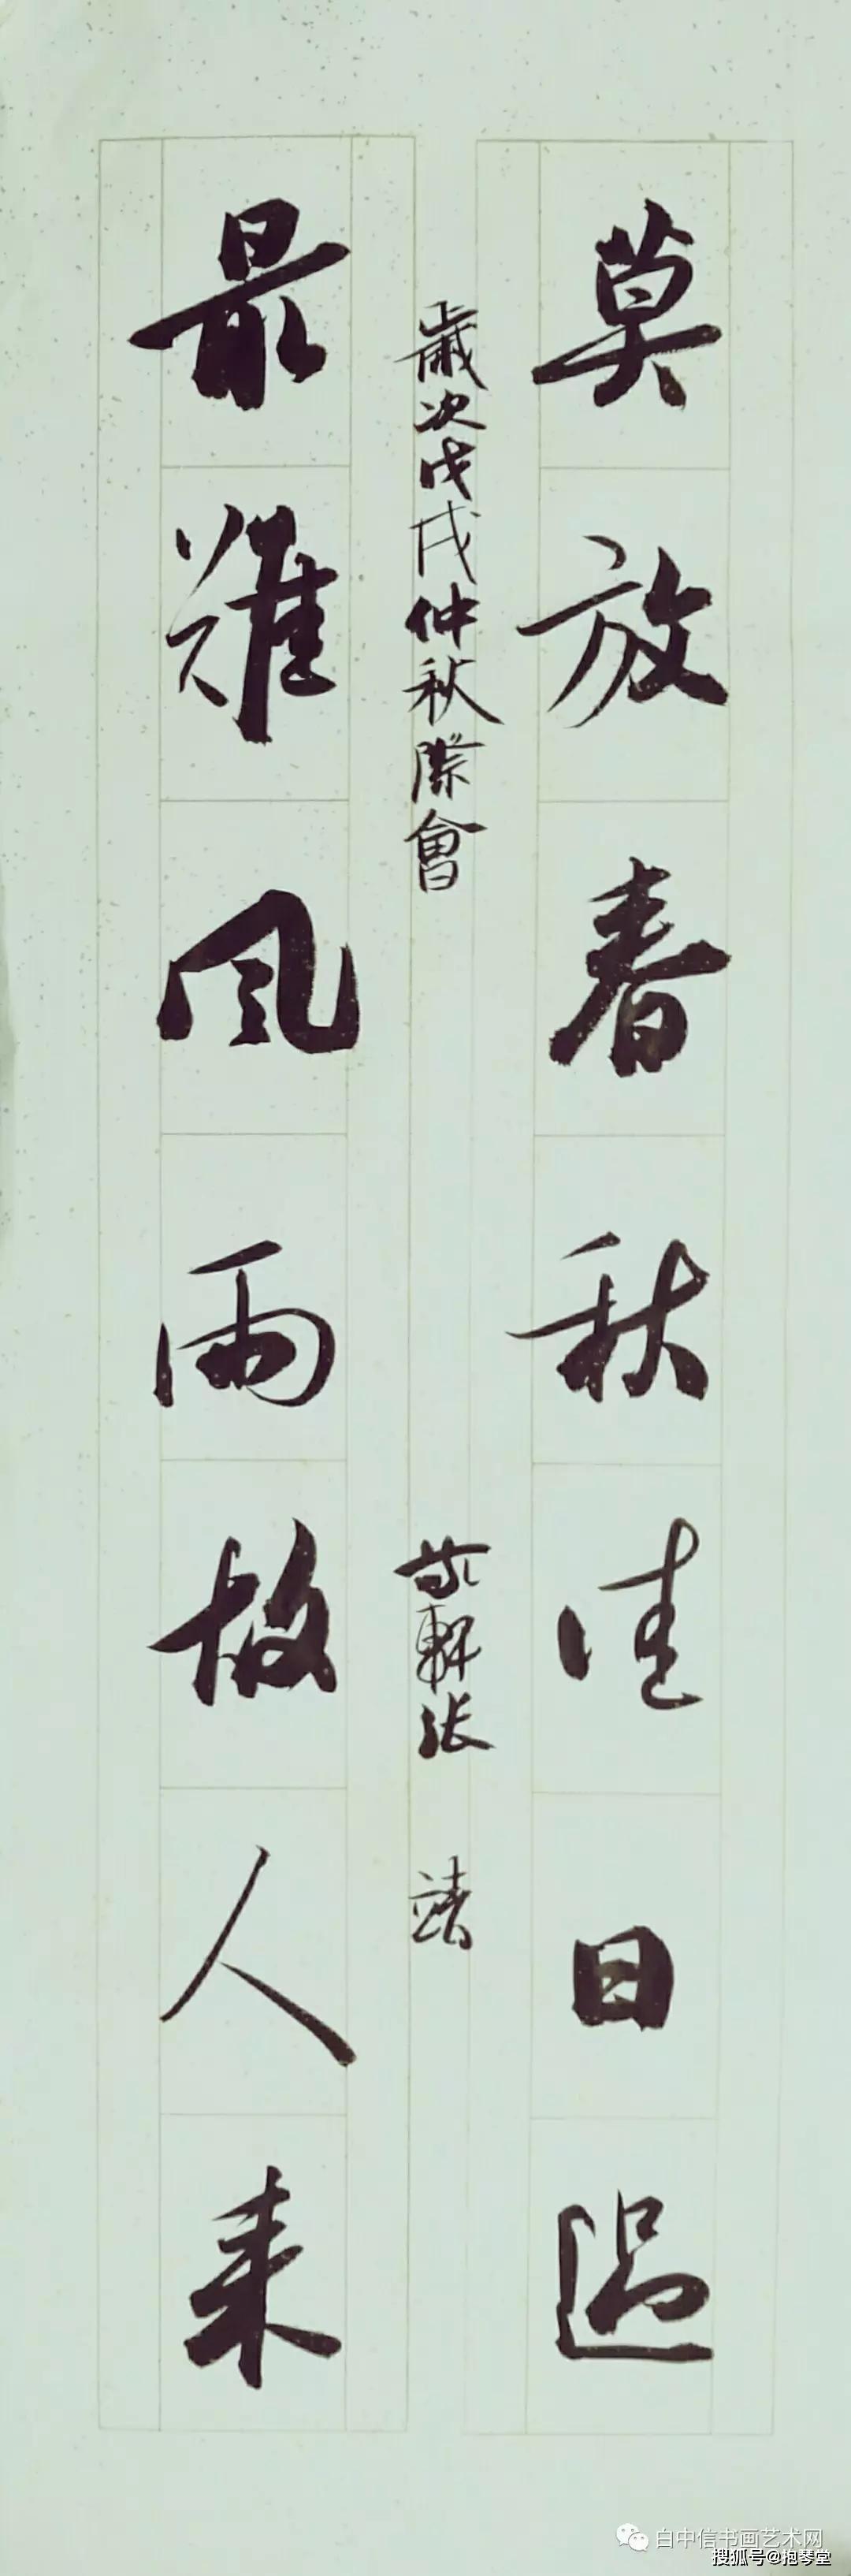 莫放春秋佳日過
歲次戊戌仲秋際會
敬軒張靖
最難風雨故人來
白中信书画艺术网
搜狐号@抱琴堂